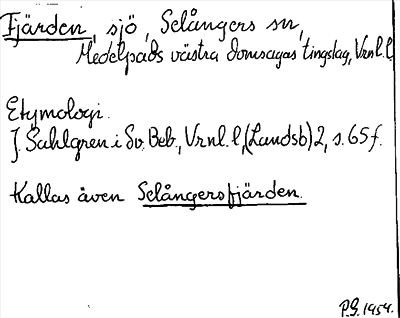 Fjärden, sjö, Selångers sn,
Medelpads västra domsagas tingslag, Vrnl. l.
Etymologi.
J. Sahlgren i Sv. Beb., Vrnl. l, (Landsb) 2, s. 65 f.
Kallas även Selångersfjärden.
P.G. 1954.